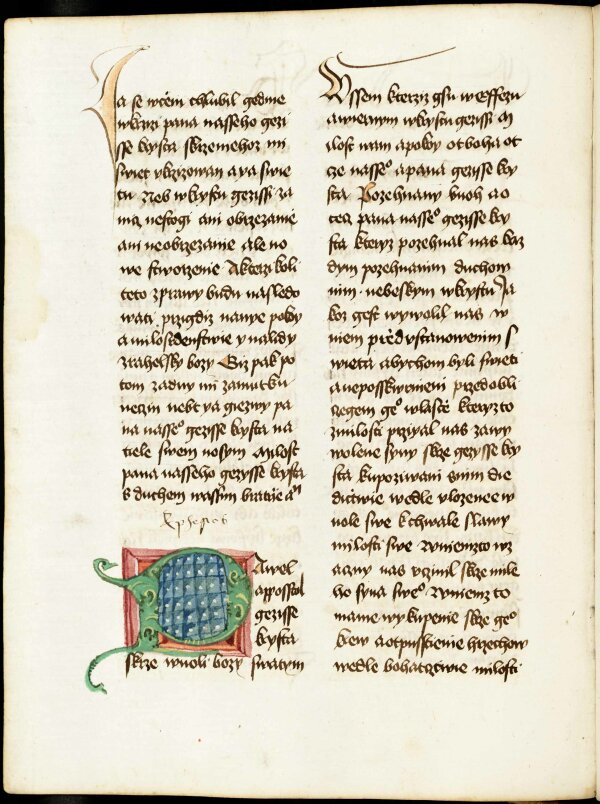 Ja se wčem chlubil gedine
w krzizi pana nasseho gezi
sse krysta skrzemehoz mi
swiet vkrzizowan a ya swie
tu Neb w krystu gezissi za
ma nestogi ani obrzezanie
ani neobrzezanie ale no
we stworzenie A kterzi koli
teto zprawy budu nasledo
wati przigdiz na nye pokoy
a milosrdenstwie y na lidy
Izrahelsky bozy Giz pak po
tom zadny mi zamutku
neczin nebt ya giezwy pa
na nasseº gezisse krysta na
tiele swem nosym Milost
pana nasseho gezysse krysta
s duchem wassim bratrie aṁ
Ephesios
Pawel
appostol
gezisse
krysta
skrze wuoli bozy swatym
Wssem kterziz gsu w effezu
a wiernym w krystu gezissi M
ilost wam a pokoy ot boha ot
cze nasseº a pana gezisse kry
sta Pozehnany buoh a o
tecz pana nasseº gezisse kry
sta kteryz pozehnal nas kaz
dym pozehnanim duchow
nim nebeskym w krystu Ja
koz gest wywolil nas w
niem przed vstanowenim s
wieta abychom byli swieti
a neposskwrnieni przed obli
czegem geº w lasce kteryz to
zmilosti prziyal nas za wy
wolene syny skrze gezysse kry
sta kupoziwani s nim die
dictwie wedle vlozenee w
uole swe k chwale slawy
milosti swe w niemzto wz
aczny nas vczinil skrze mile
ho syna sweº w niemz to
mame wykupenie skrze geº
krew a otpustienie hrzechow
wedle bohatcztwie milosti